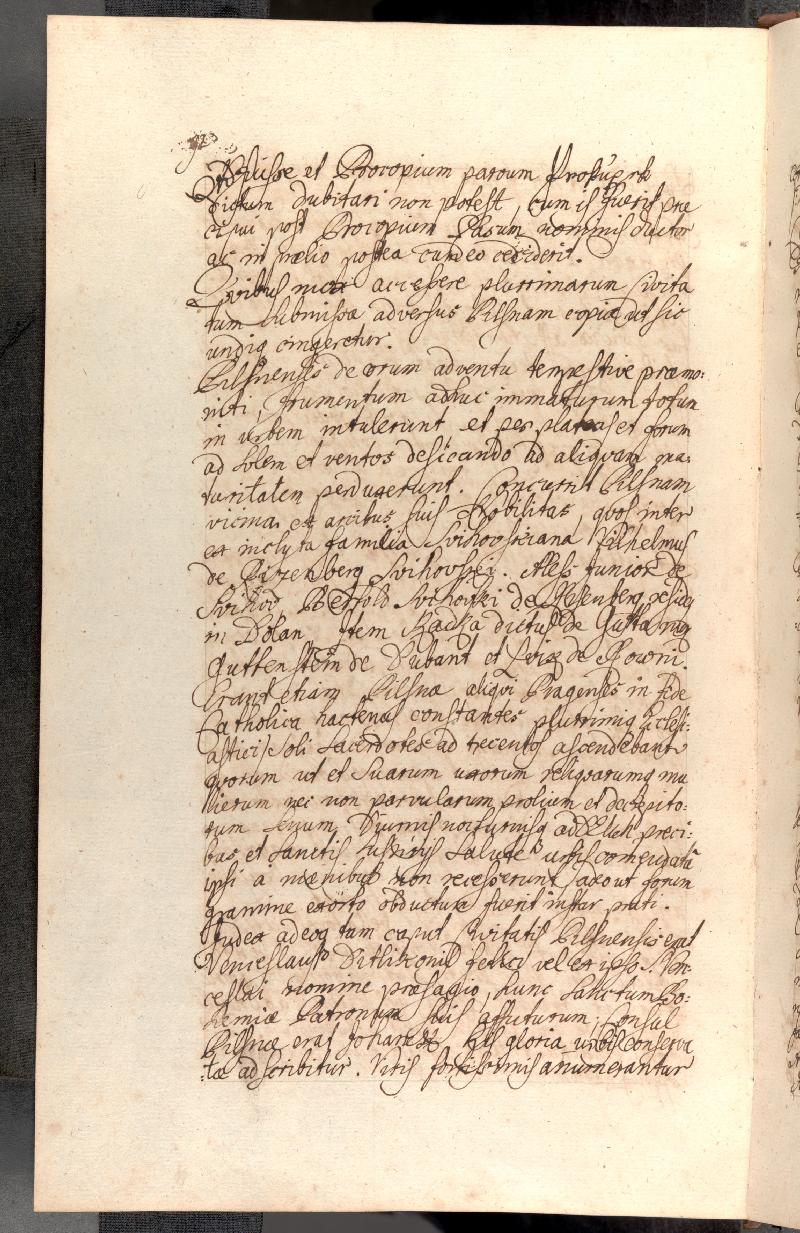 Adfuisse et Procopium parvum Prokupek
dictum dubitari non potest, cum is fuerit præ
cipui post Procopium Rasum nominis ductor
ac in prælio postea cum eo ceciderit.
Quibus mox accessere plurimarum Civita
tum submissæ adversus Pilsnam copiæ ut sic
undiq cingeretur.
Pilsnenses de eorum adventu tempestive præmo:
niti, frumentum adhuc immaturum totum
in urbem intulerunt et per plateas et forum
ad solem et ventos desiccando ad aliquam ma:
turitatem perduxerunt. Concurrit Pilsnam
vicina ex arcibus suis Nobilitas, quos inter
ex inclyta familia Svihovsciana Vilhelmus
de Rizenberg Svihovsky. Aless Junior de
Svihov, Bertold Svihovski de Risenberg resid
in Dolan. Item Raczka dictus de Gutta
Guttenstein de Dubant et de Rowni.
Erant etiam Pilsnæ aliqvi Pragenses in fide
Catholica hactenus constantes plurimiq Ecclesi:
astici, soli Sacerdotes ad trecentos ascendebant
quorum ut et suarum uxorum reliqvarumq mu
lierum nec non parvularum prolium et decrepito:
rum senum, Diurnis nocturnisq ad Deum preci:
bus et sanctis salute urbis comendata
ipsi a mænibus non recesserunt, forum
gramine exorto obductum fuerit instar prati.
Judex adeoq tum caput Civitatis Pilsnensis erat
Venceslaus felici vel ex ipso S. Ven:
ceslai nomine præsagio, hunc Sanctum Bo:
hemiæ Patronum suis affuturum, Consul
Pilsnæ erat Johannes his gloria urbis conserva
:tæ adscribitur. Viris fortissimis anumerantur